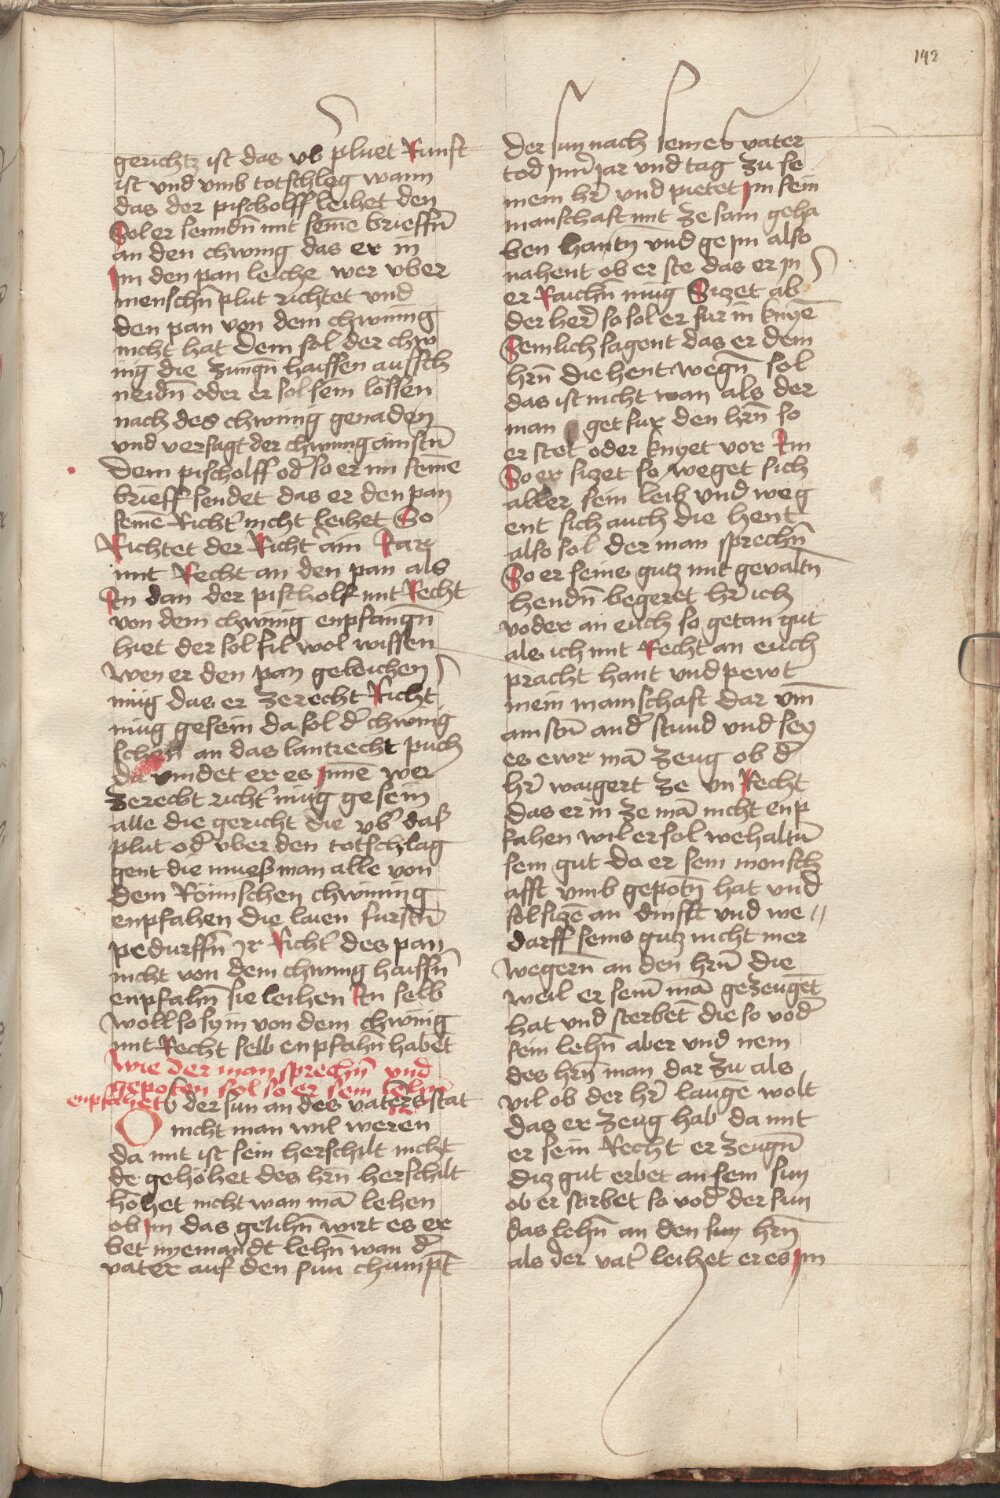 142
gerichtz ist das vb pluet Runst
ist vnd vmb totschleg wann
das der pischolff leihet den
Sol er senndn̄ mit seīne brieffn̄
an den chwnig das er in
Im den pan leiche wer vber
menschn̄ plut richtet vnd
den pan von dem chwnnig
nicht hat dem sol der chw
nig die zungn̄ haissen aufsch
neidn̄ oder er sol sein lossen
nach des chwnig genaden
vnd versagt der chwnng ainstn̄
dem pischolff od̄ so er im seīne
brieff sendet das er den pan
seinē Richt̄ nicht leihet So
Richtet der Richt̄ ain Iar
mit Recht an den pan als
In dan der pischolf mit Recht
von dem chwnig enpfangn̄
hiet der sol fil wol wissen
wen er den pan geleichen
müg das er zerecht Richt
müg gesein da sol d̄ chwnig
schen an das lantrecht puch
da vindet er es Innē wer
zerecht richt̄ müg gesein
alle die gericht die vb̄ das
plut od̄ vber den totschlag
gent die muess man alle von
dem Römischen chwnnig
enpfahen die laien furstn̄
pedurffn̄ Ir Richt̄ des pan
nicht von dem chwnig haissn̄
enpfahn̄ sie leihen In selb
woll so sy in von dem chwnig
mit Recht selb enpfahn̄ habet
wie der man sprechn̄ vnd
gepoten sol so er sein lehn̄
enpfahet
Ob der sun an des vaters stat
nicht man wil weren
da mit ist sein herschilt nicht
de gehöhet des hrn̄ herschilt
höhet nicht wan mā lehen
ob Im das gelihn̄ wirt es er
bet nyemandt lehn̄ wan d̄
vater auf den sun chumpt
der sun nach seines vater
tod Inn̄ jar vnd tag zu se
nem hr̄ vnd pietet Im sein
manschaft mit ze sam geha
ben hantn̄ vnd ge Im also
nahent ob er ste das er In
er Raichn̄ müg Sizet ab
der her̄ so sol er fur in knyē
Semlich sagent das er dem
hrn̄ die hent wegn̄ sol
das ist nicht wan als der
man get fur den hrn̄ so
er stet oder knyet vor Im
So er sizet so weget sich
aller sein leib vnd weg
ent sich auch die hent
also sol der man sprechn̄
So er seins gutz mit gevaltn̄
hendn̄ begeret hr̄ ich
voder an euch so getan gut
als ich mit Recht an euch
pracht hant vnd pewt
mein manschaft dar vm̄
ain stn̄ and̄ stund vnd sey
es ewr mā zeug ob d̄
hr̄ waigert ze vn Recht
das er in ze mā nicht enp
fahen wil er sol wehaltn̄
sein gut do er sein monsch
afft vmb gepotn̄ hat vnd
sol sizē an dinfft vnd we
darff seins gutz nicht mer
wegern an den hrn̄ die
weil er sein̄ mā gezeuget
hat vnd sterbet die so vod̄
sein lehn̄ aber vnd nem
des hrn̄ man dar zu als
vil ob der hr̄ laugē wolt
das er zeug hab da mit
er sein Recht er zeugn̄
diz gut erbet an sein sun
ob er storbet so vod̄ der sun
das lehn̄ an den sun hrn̄
als der vat̄ leihet er es Im